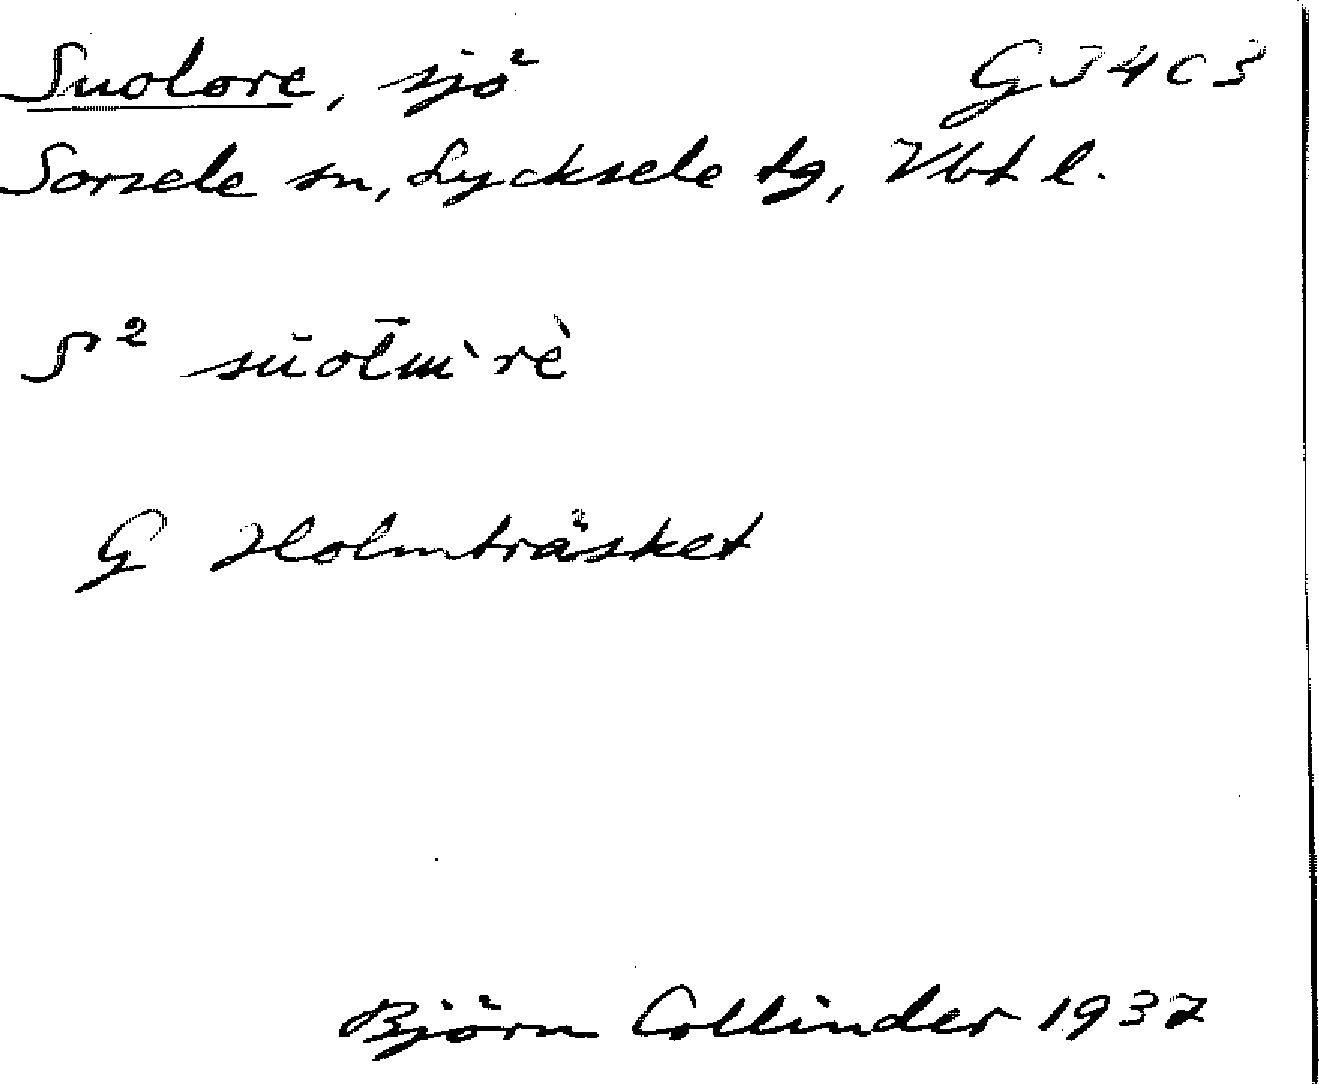 Suolore, sjö G34C3
Sorsele sn, Lycksele tg, Vbt l.
S²
G Holmträsket
Björn Collinder 1937